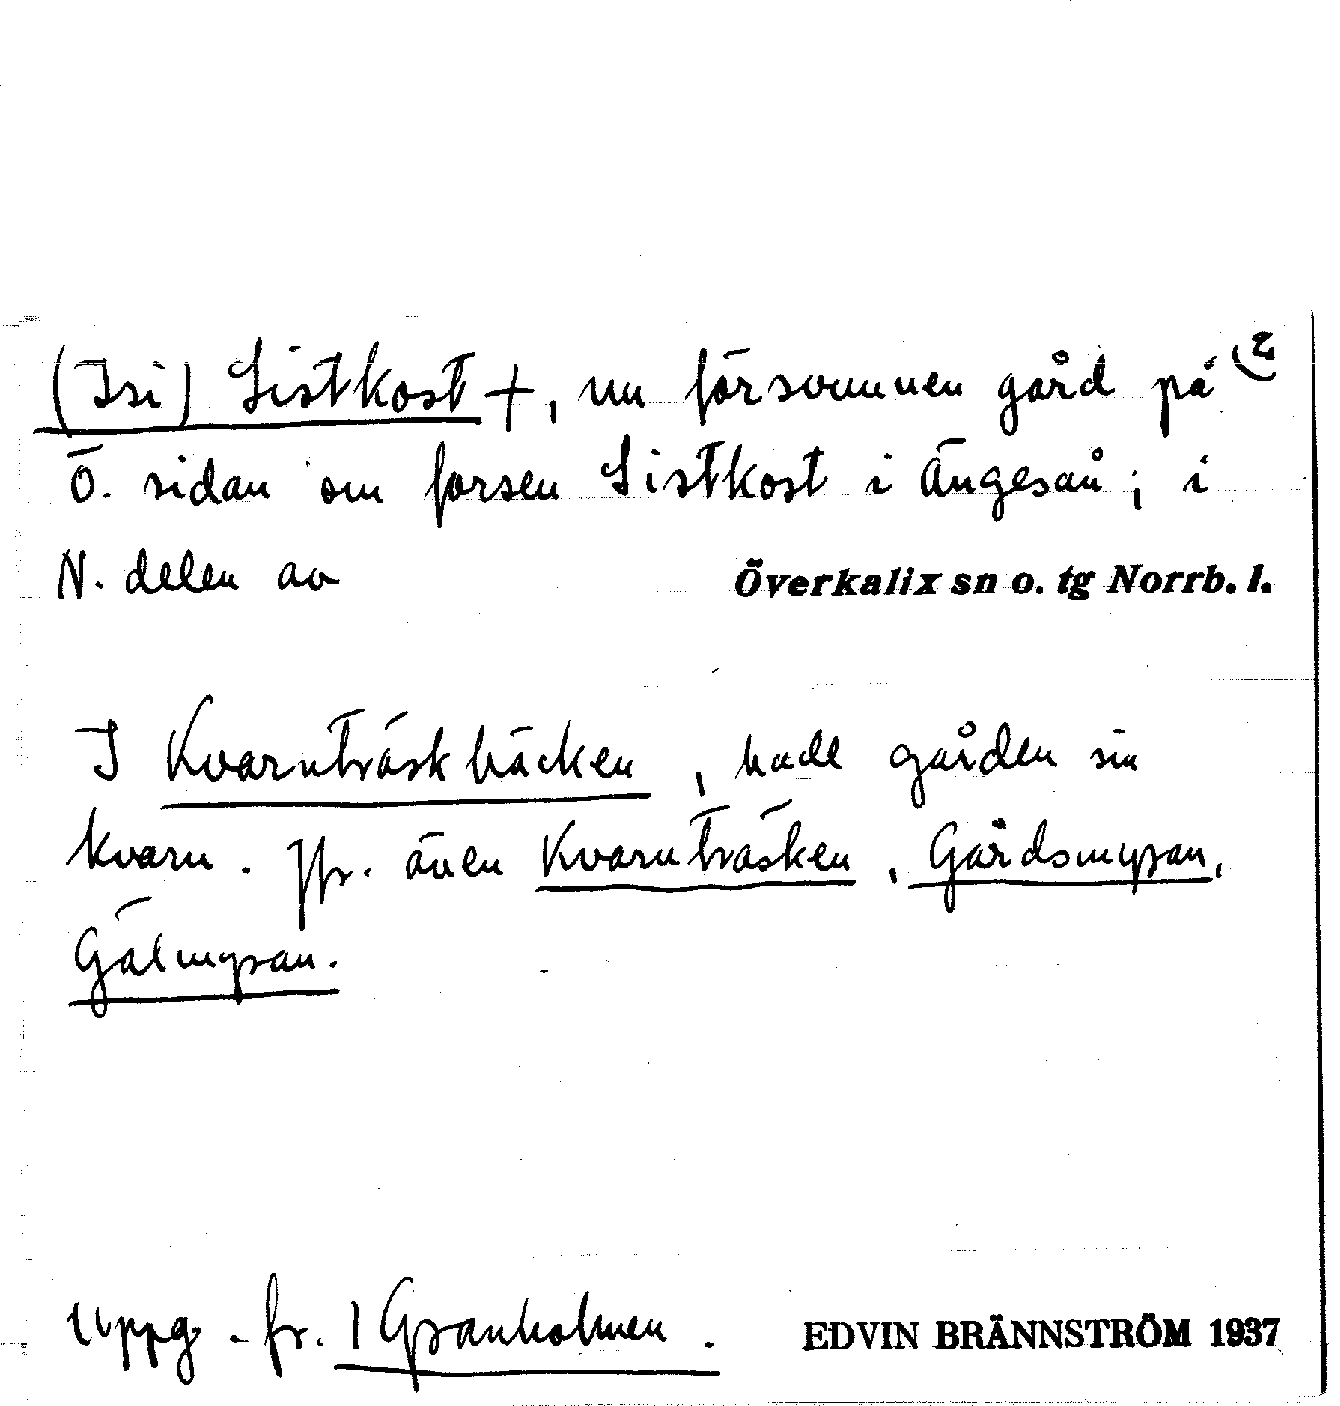 (Isi) Sistkost +, nu försvunnen gård på (2
Ö. sidan om forsen Sistkost i Ängesån; i
N. delen av Överkalix sn o. tg Norrb. l.
I Kvarnträskbäcken, hade gården sin
kvarn. Jfr. även Kvarnträsken, Gårdsmyran,
Gälmyran.
Uppg. fr. 1 Granholmen. EDVIN BRÄNNSTRÖM 1937